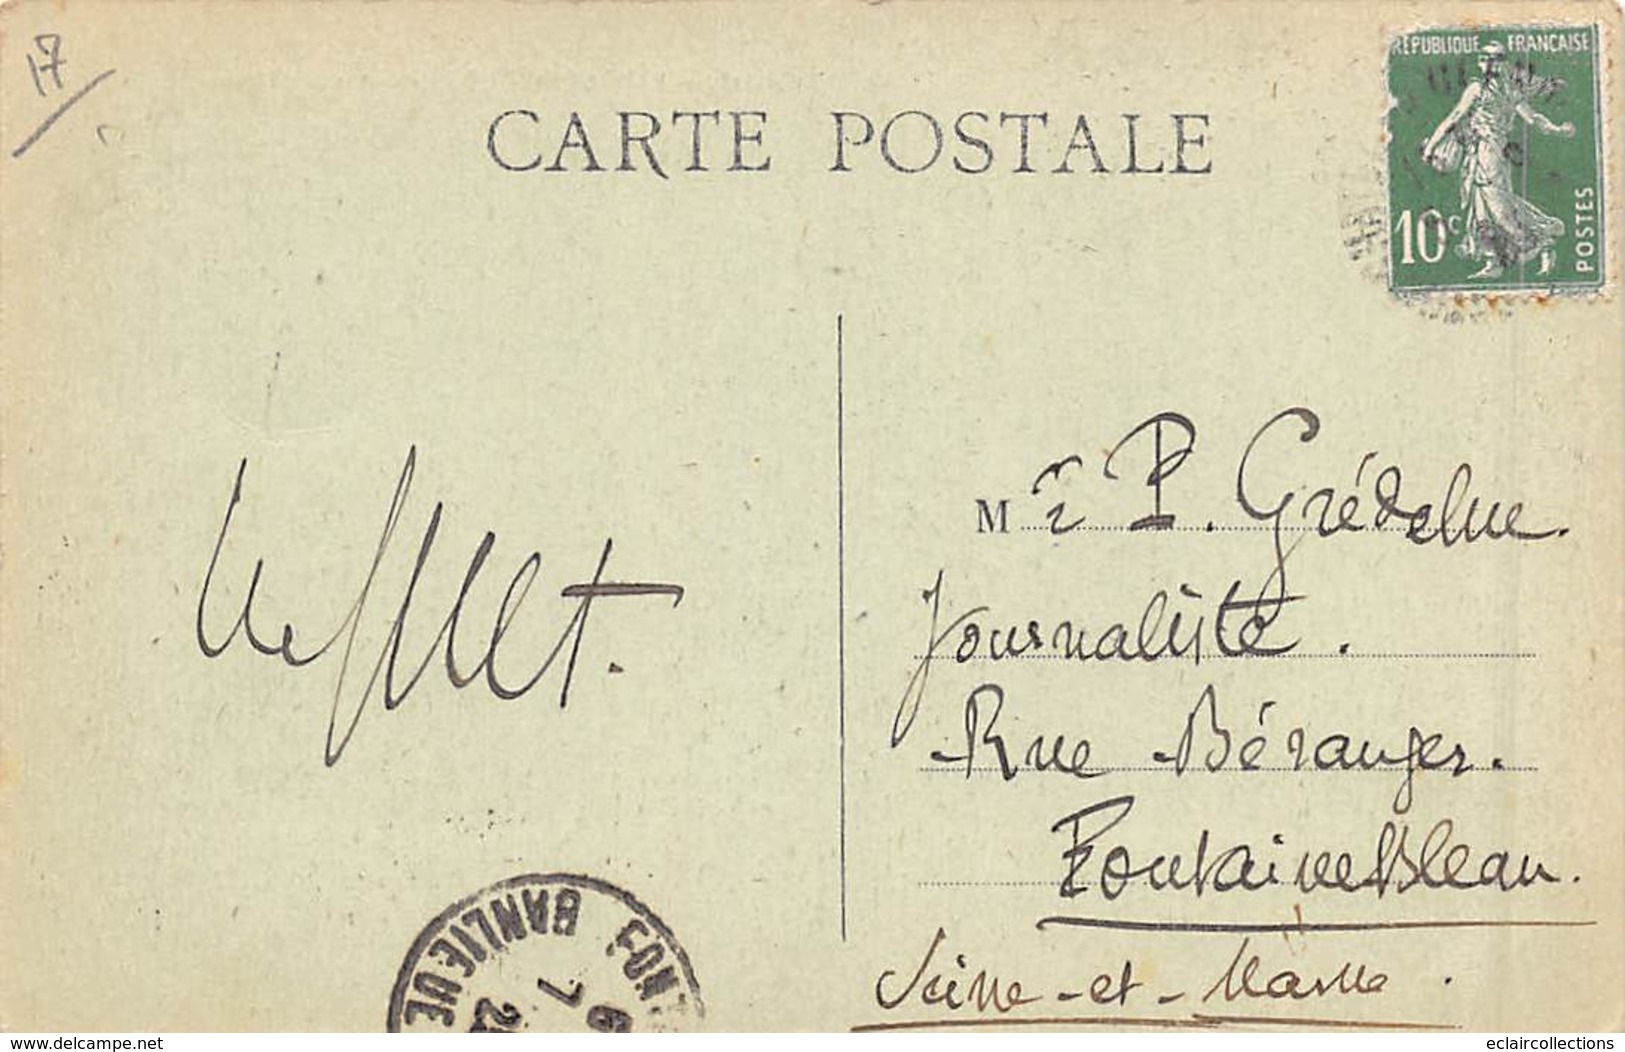 17
CARTE POSTALE
RÉPUBLIQUE FRANÇAISE
10c
POSTES
M r P. Grédelue.
Journaliste.
Rue Béranger.
Fontainebleau.
Seine-et-Marne.
BANLIEUE FONT
6
7
delcampe.net
eclaircollections